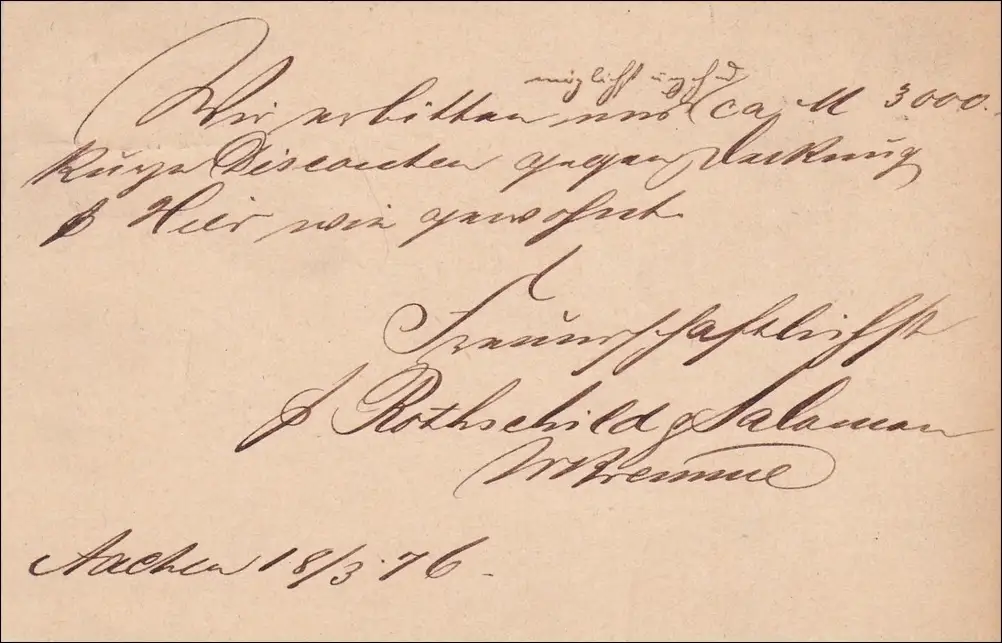 möglichst umgehend
Wir erbitten uns ca M 3000.
Kurze Disconten gegen Deckung
p Hier wie gewohnt.
Freundschaftlichst
p Rothschild & Salamon
Aachen 18/3 76.